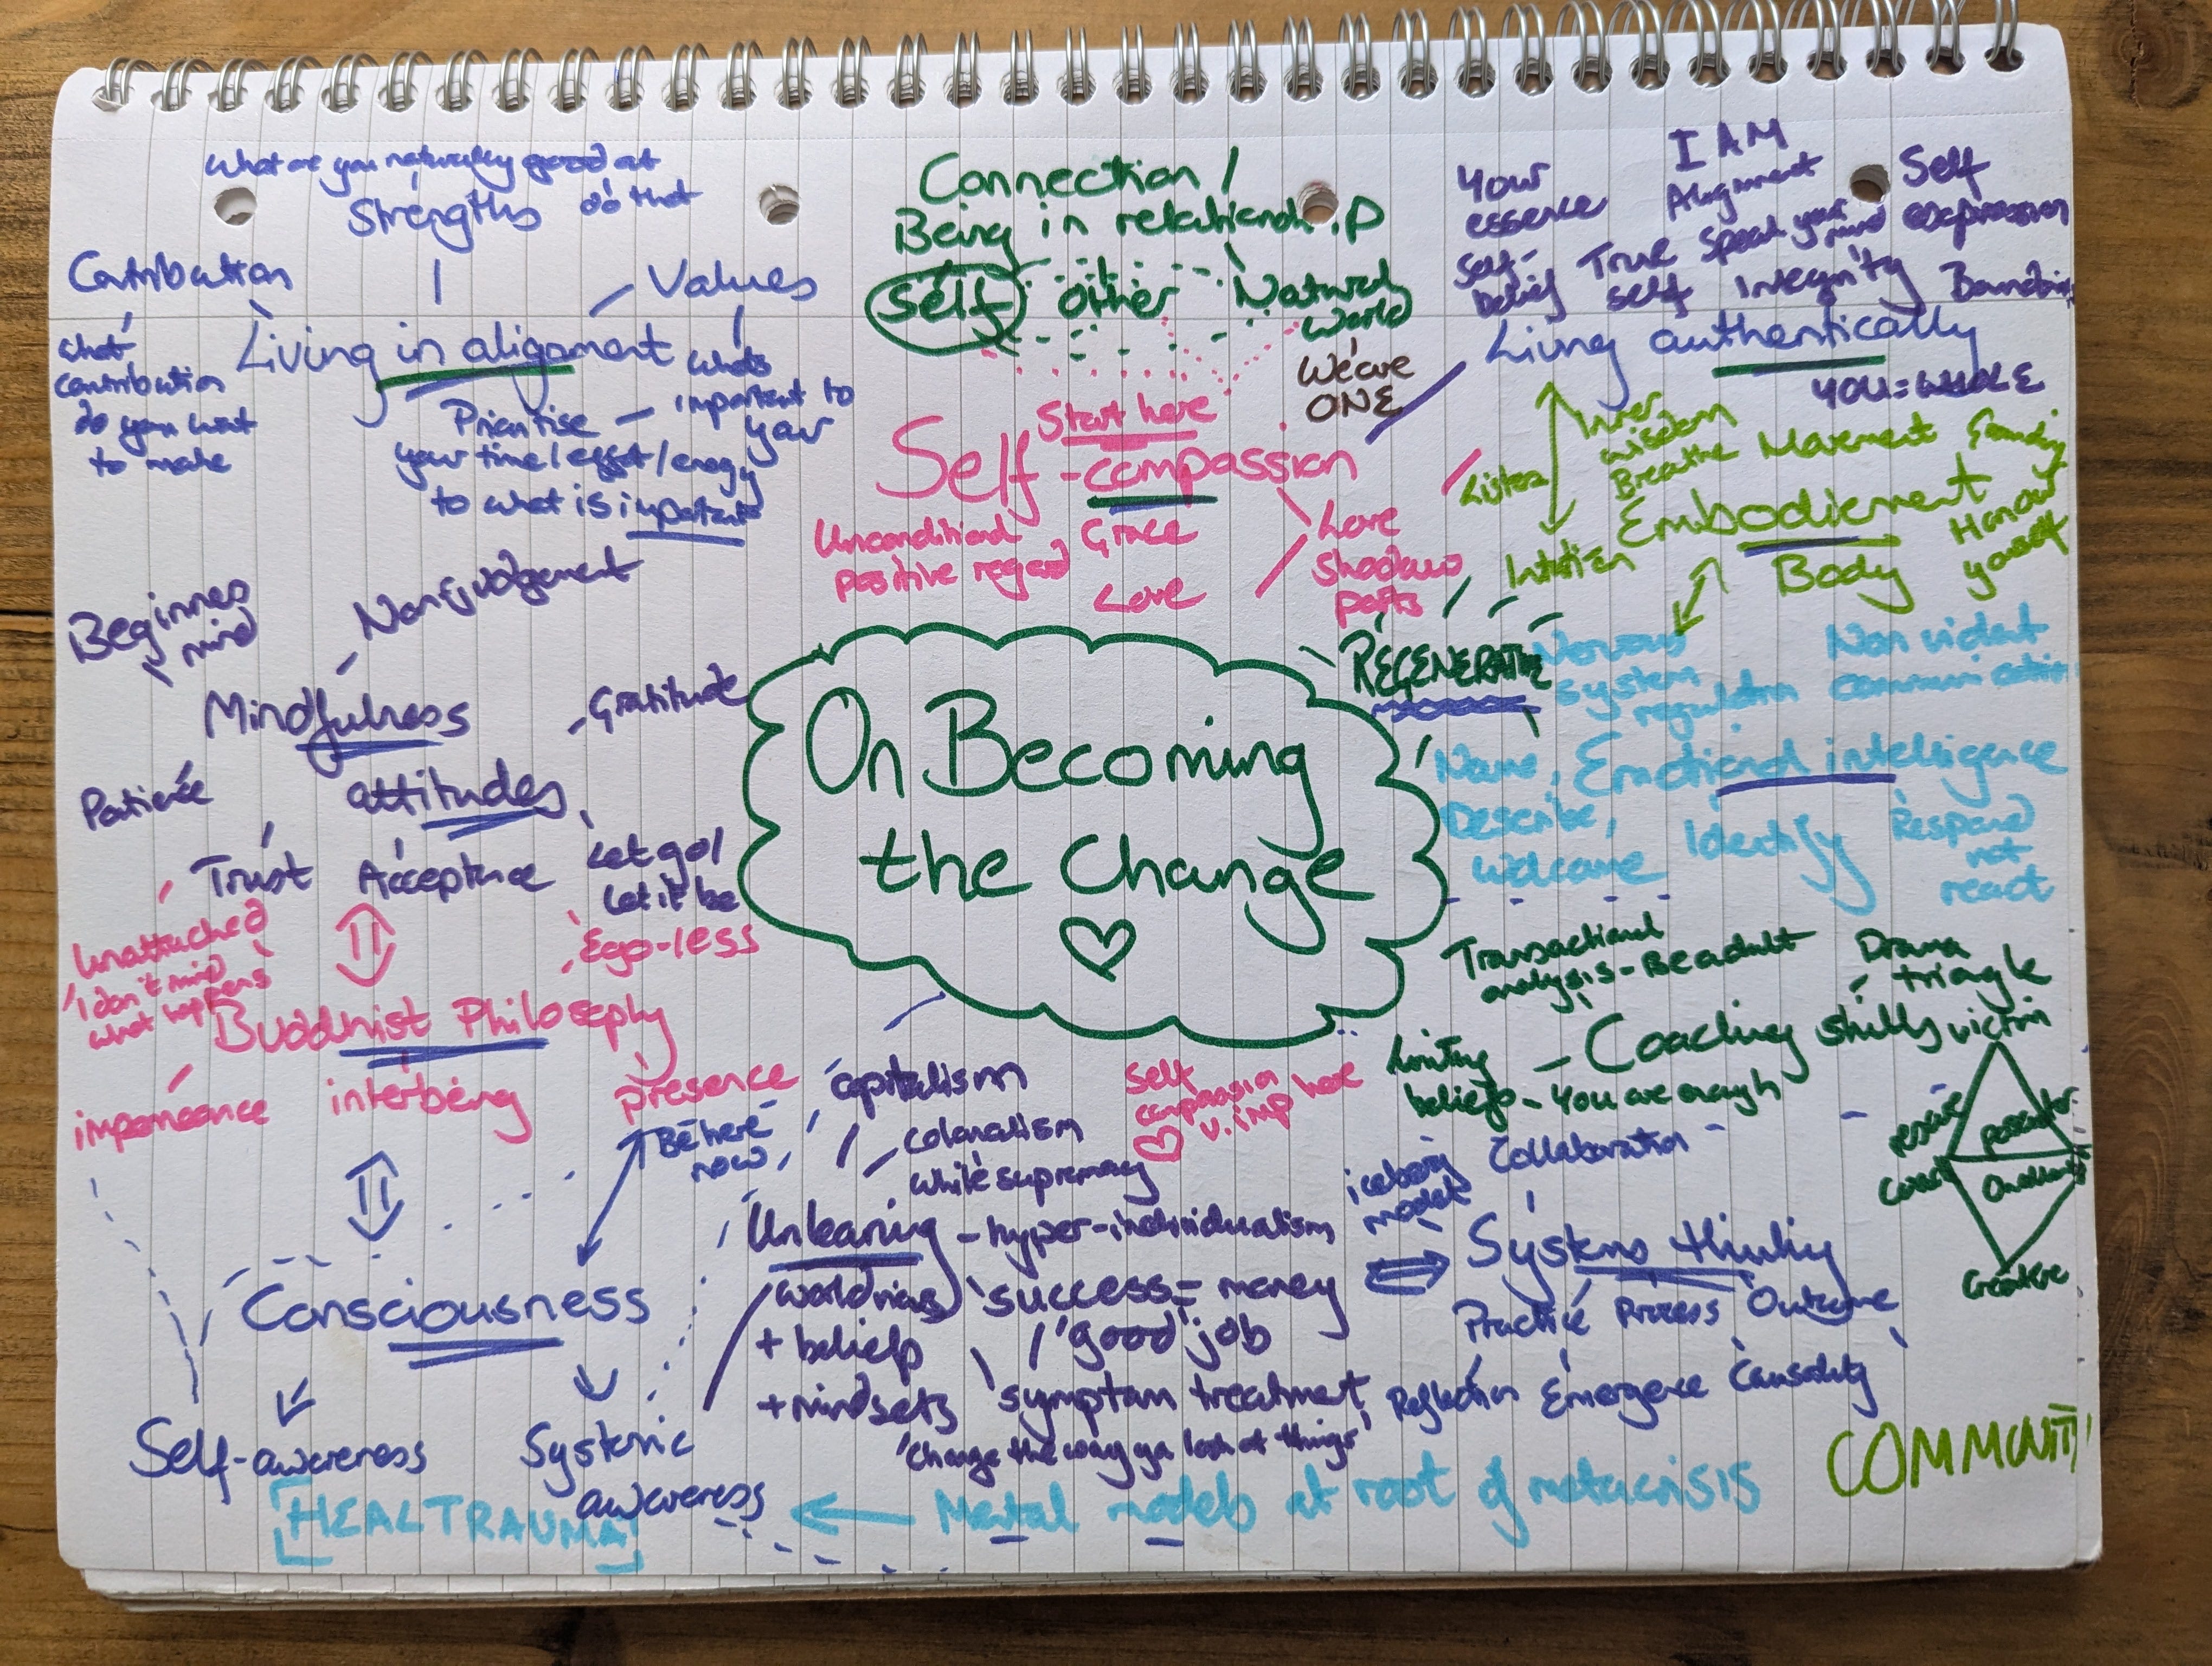 What are you naturally good at
do that
Strengths
Contribution
Values
What
contribution
do you want
to make
Living in alignment
What's
important to
you
Prioritise
your time/effort/energy
to what is important
Connection /
Being in relationship
Self other Natural
world
We are
ONE
Start here
Self-compassion
Unconditional
positive regard
Grace
Love
Love
Shadows
parts
Your
essence
I AM
Alignment
Self
expression
Self-
belief
True
self
Speak your
mind
Integrity
Living authentically
YOU=WHOLE
Inner
wisdom
Breathe
Movement
Listen
Embodiement
Body
Honour
yourself
Intuition
REGENERATIVE
Nervous
system
regulation
Non violent
communication
Name,
Describe,
Welcome
Emotional intelligence
Identify
Respond
not
react
Beginners
mind
Non-judgement
Mindfulness
attitudes
Gratitude
Patience
Trust
Acceptance
Let go/
Let it be
On Becoming
the Change
Unattached
'I don't mind
what happens'
Ego-less
Buddhist Philosophy
interbeing
presence
Be here
now
Consciousness
Self-awareness
Systemic
awareness
[HEAL TRAUMA]
capitalism
colonialism
white supremacy
Unlearning
- hyper-individualism
worldviews
+ beliefs
+ mindsets
'success = money
/'good' job
symptom treatment
'Change the way you look at things'
Self
compassion
v. imp here
Transactional
analysis - Be adult
Drama
triangle
Coaching skills
Limiting
beliefs - You are enough
victim
rescuer
Creator
iceberg
model
Collaboration
Systems thinking
Practice Process Outcome
Reflection Emergence Causality
Mental models at root of metacrisis
COMMUNITY